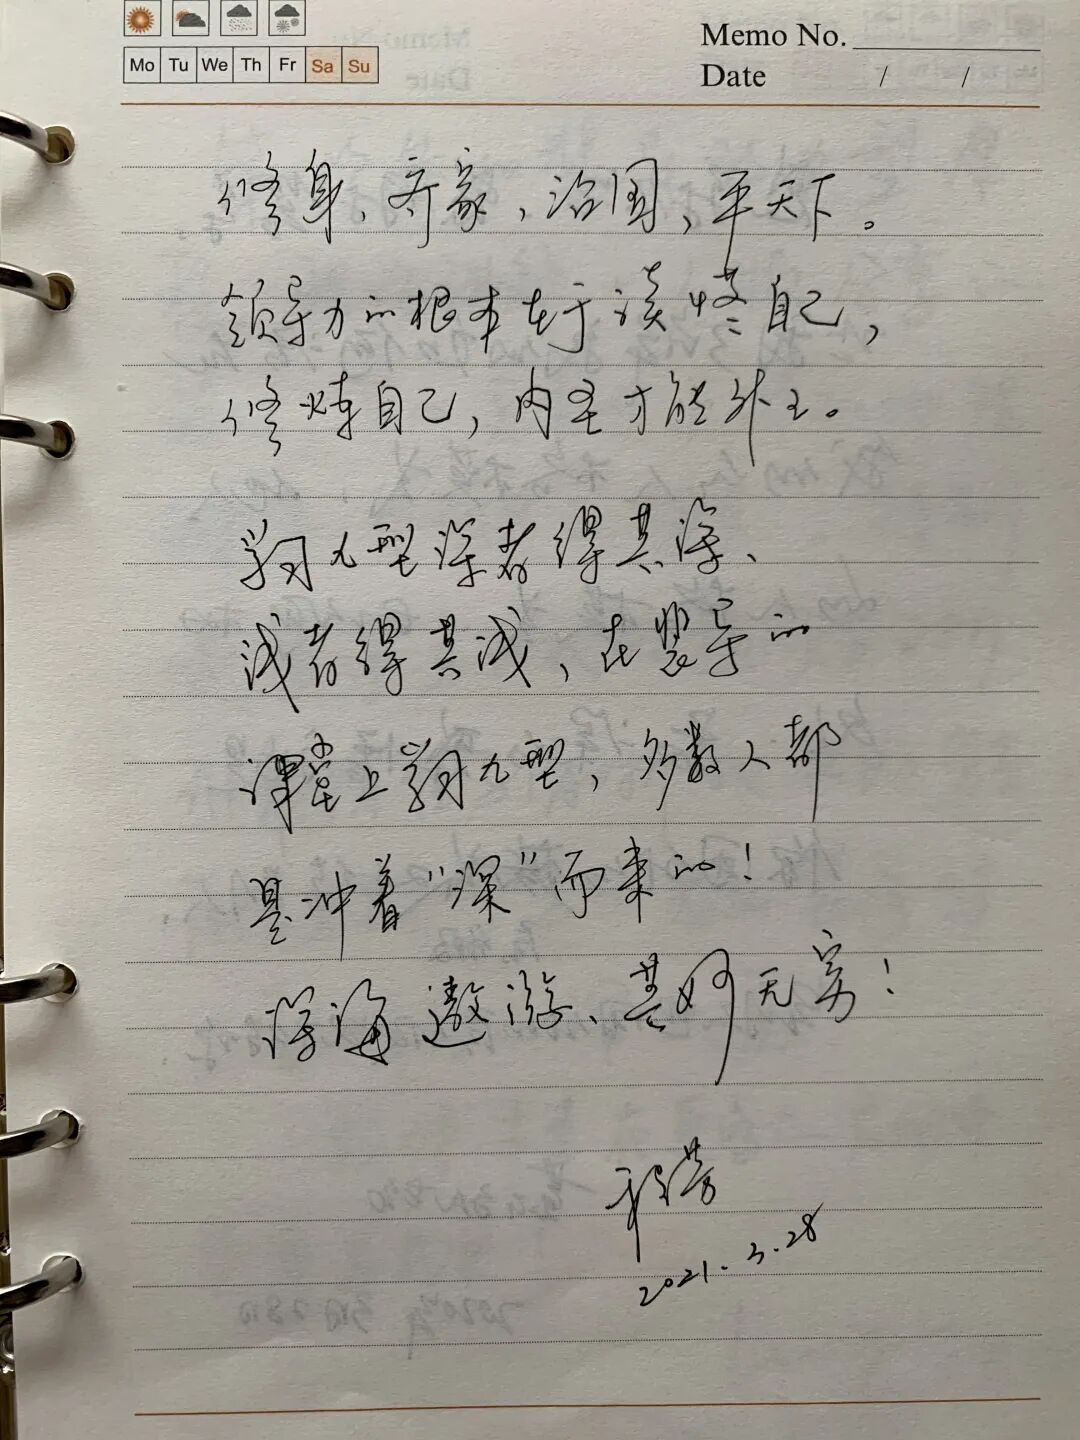 Mo Tu We Th Fr Sa Su
Memo No.
Date / /
修身、齐家、治国、平天下。
领导力的根本在于读懂自己，
修炼自己，内圣才能外王。
学习九型深者得其深、
浅者得其浅，在裴导的
课堂上学习九型，多数人都
是冲着“深”而来的！
深海遨游、其妙无穷！
2021.3.28